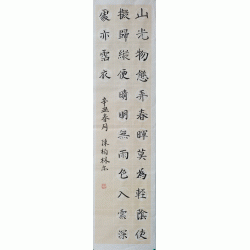 山光物態弄春暉莫為輕陰使
擬歸縱便晴明無雨色入雲深
處亦霑衣
辛丑春月 陳柏林書